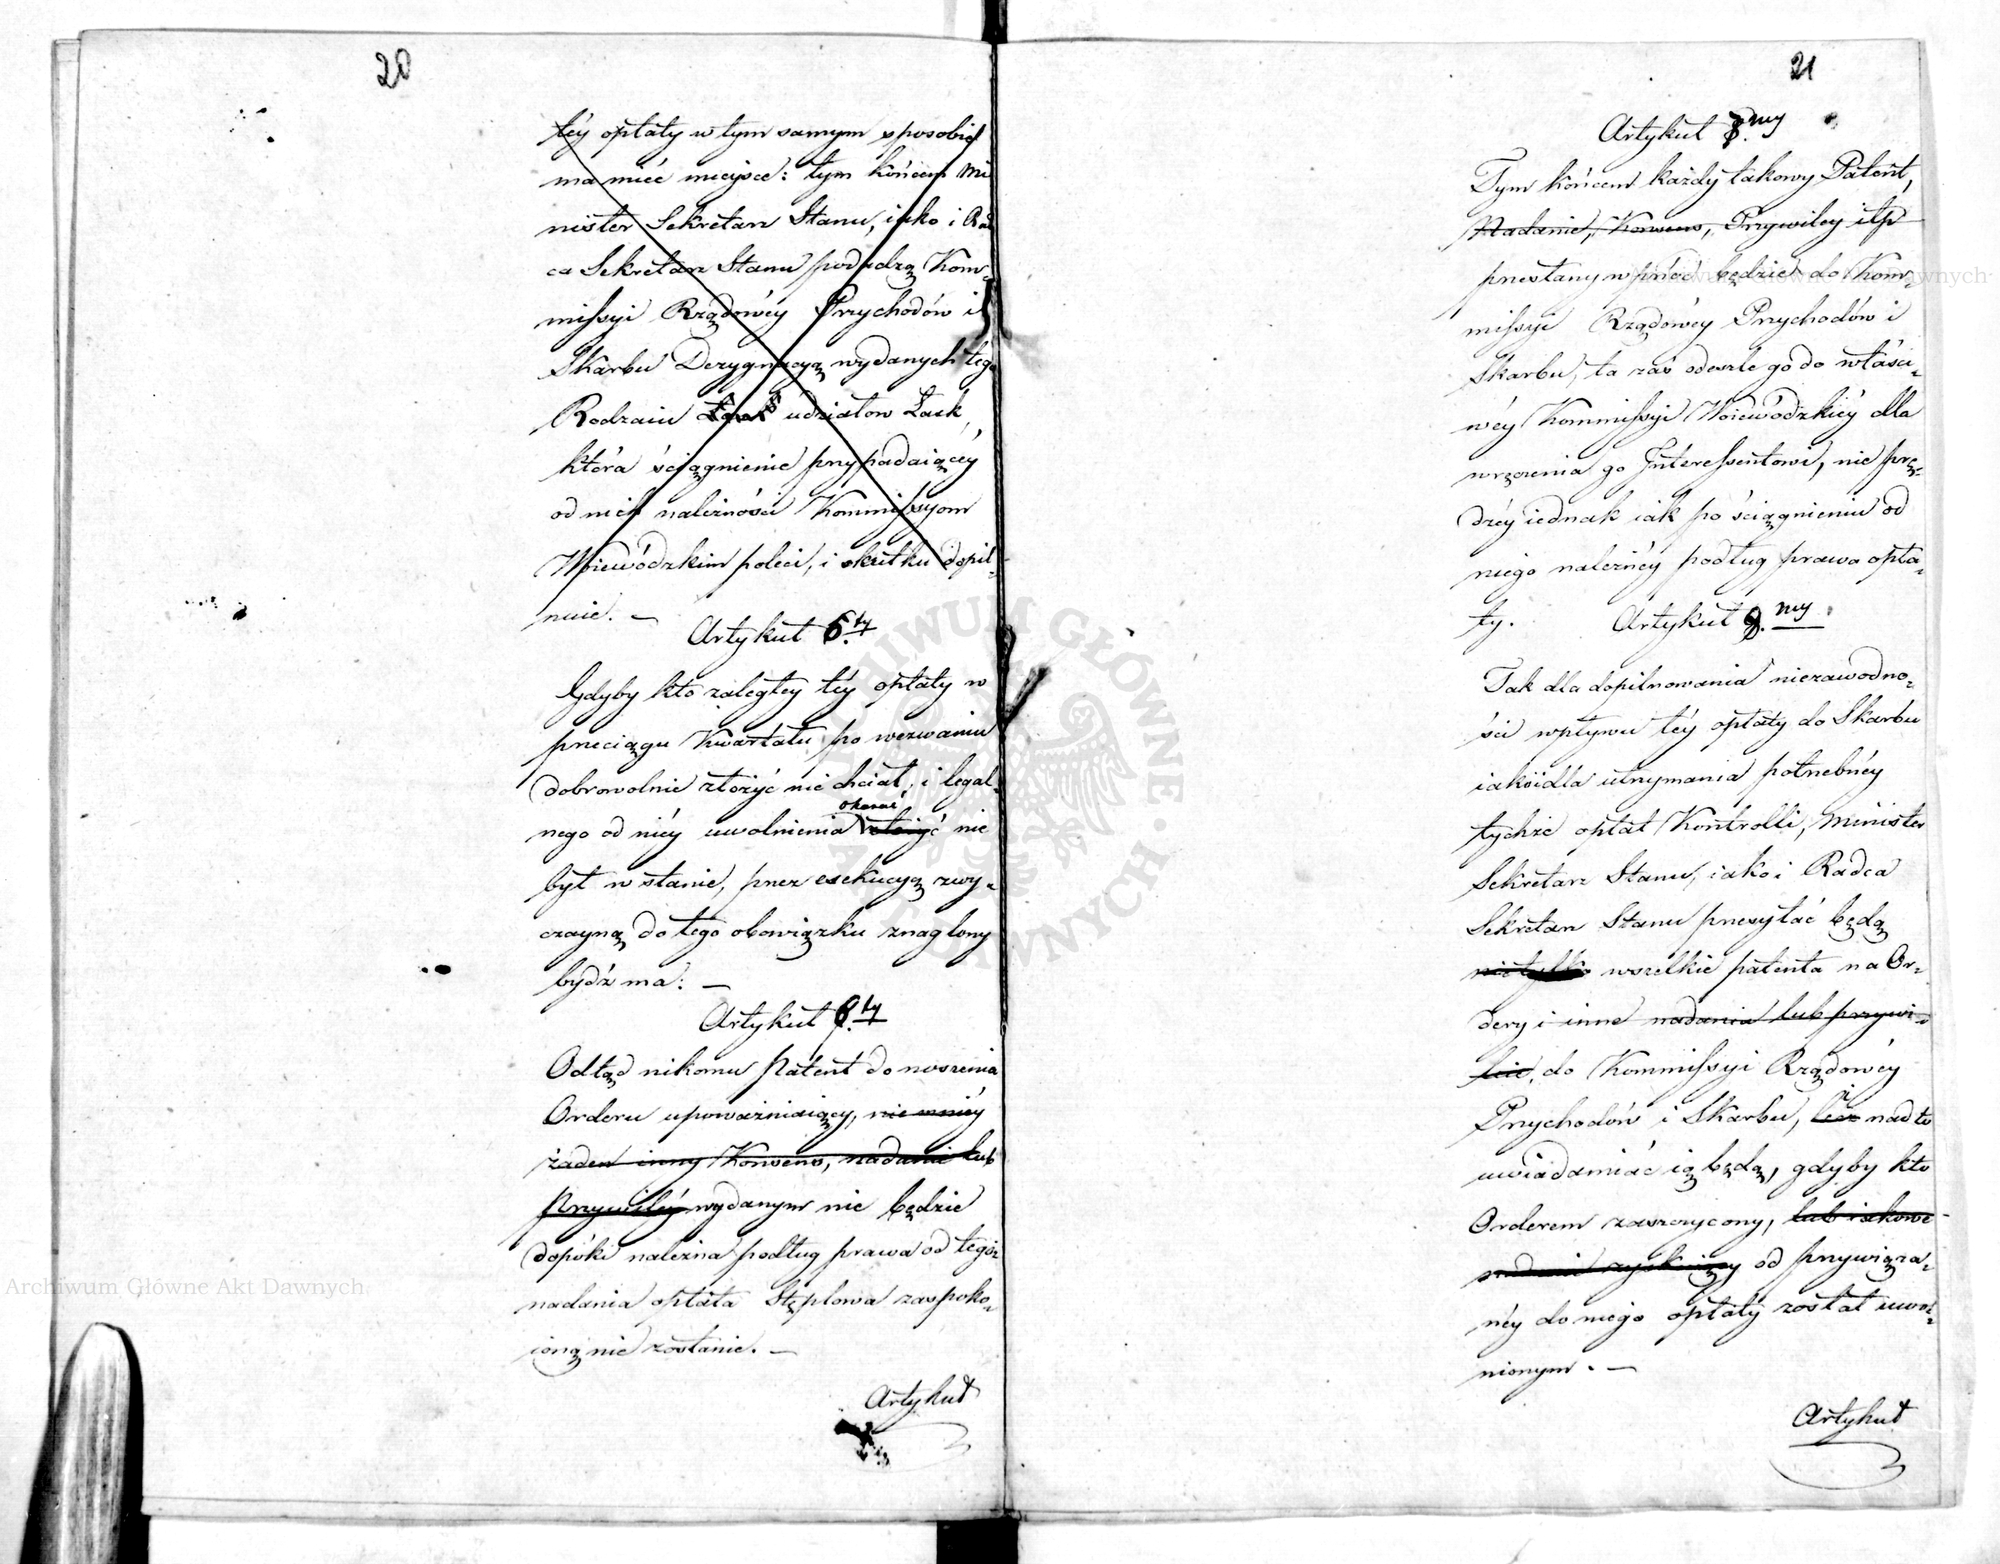 20
téy opłaty w tym samym sposobie
ma mieć mieysce: tym końcem Mi
nister Sekretarz Stanu, iako i Rad
ca Sekretarz Stanu podadzą Kom-
missyi Rządowéy Przychodów i
Skarbu Dezygnacyą wydanych tego
Rodzaiu Łask udziałow Łask,
która ściągnienie przypadaiącéy
od nich należności Kommissyom
Woiewódzkim poleci, i skutku dopil-
nuie. —
Artykuł 6.ty
Gdyby kto zaległey téy opłaty w
przeciągu Kwartału, po wezwaniu
dobrowolnie złożyć nie chciał, i legal-
okazać
nego od niéy uwolnienia złożyć nie
był w stanie, przez exekucyą zwy-
czayną do tego obowiązku znaglony
bydź ma: —
Artykuł ty
Odtąd nikomu Patent do noszenia
Orderu upoważniaiący, nie mniéy
żaden inny Konsens, nadanie lub
Przywiléy wydanym nie będzie
dopóki należna podług prawa od tegóż
nadania opłata Stęplowa zaspoko-
ioną nie zostanie. —
Artykuł
21
Artykuł 8.my
Tym końcem każdy takowy Patent,
Nadanie, Konsens, Przywiley itp
przesłany wprzód będzie do Kom-
missyi Rządowéy Przychodów i
Skarbu, ta zaś odeszle go do właści-
wéy Kommissyi Woiewódzkiéy dla
wręczenia go Interessentowi, nie prę-
dzéy iednak iak po ściągnieniu od
niego należnéy podług prawa opła-
ty.
Artykuł 9.my
Tak dla dopilnowania niezawodno-
ści wpływu téy opłaty do Skarbu
iako i dla utrzymania potrzebnéy
tychże opłat Kontrolli, Minister
Sekretarz Stanu, iako i Radca
Sekretarz Stanu przesyłać będą
nie tylko wszelkie patenta na Or-
dery i inne nadania lub przywi-
leie, do Kommissyi Rządowéy
Przychodów i Skarbu, lecz nadto
uwiadamiać ią będą, gdyby kto
Orderem zaszczycony, lub iakowe
nadanie zyskuiący od przywiąza-
néy do niego opłaty został uwol-
nionym. —
Artykuł
Archiwum Główne Akt Dawnych
ARCHIWUM GŁÓWNE AKT DAWNYCH